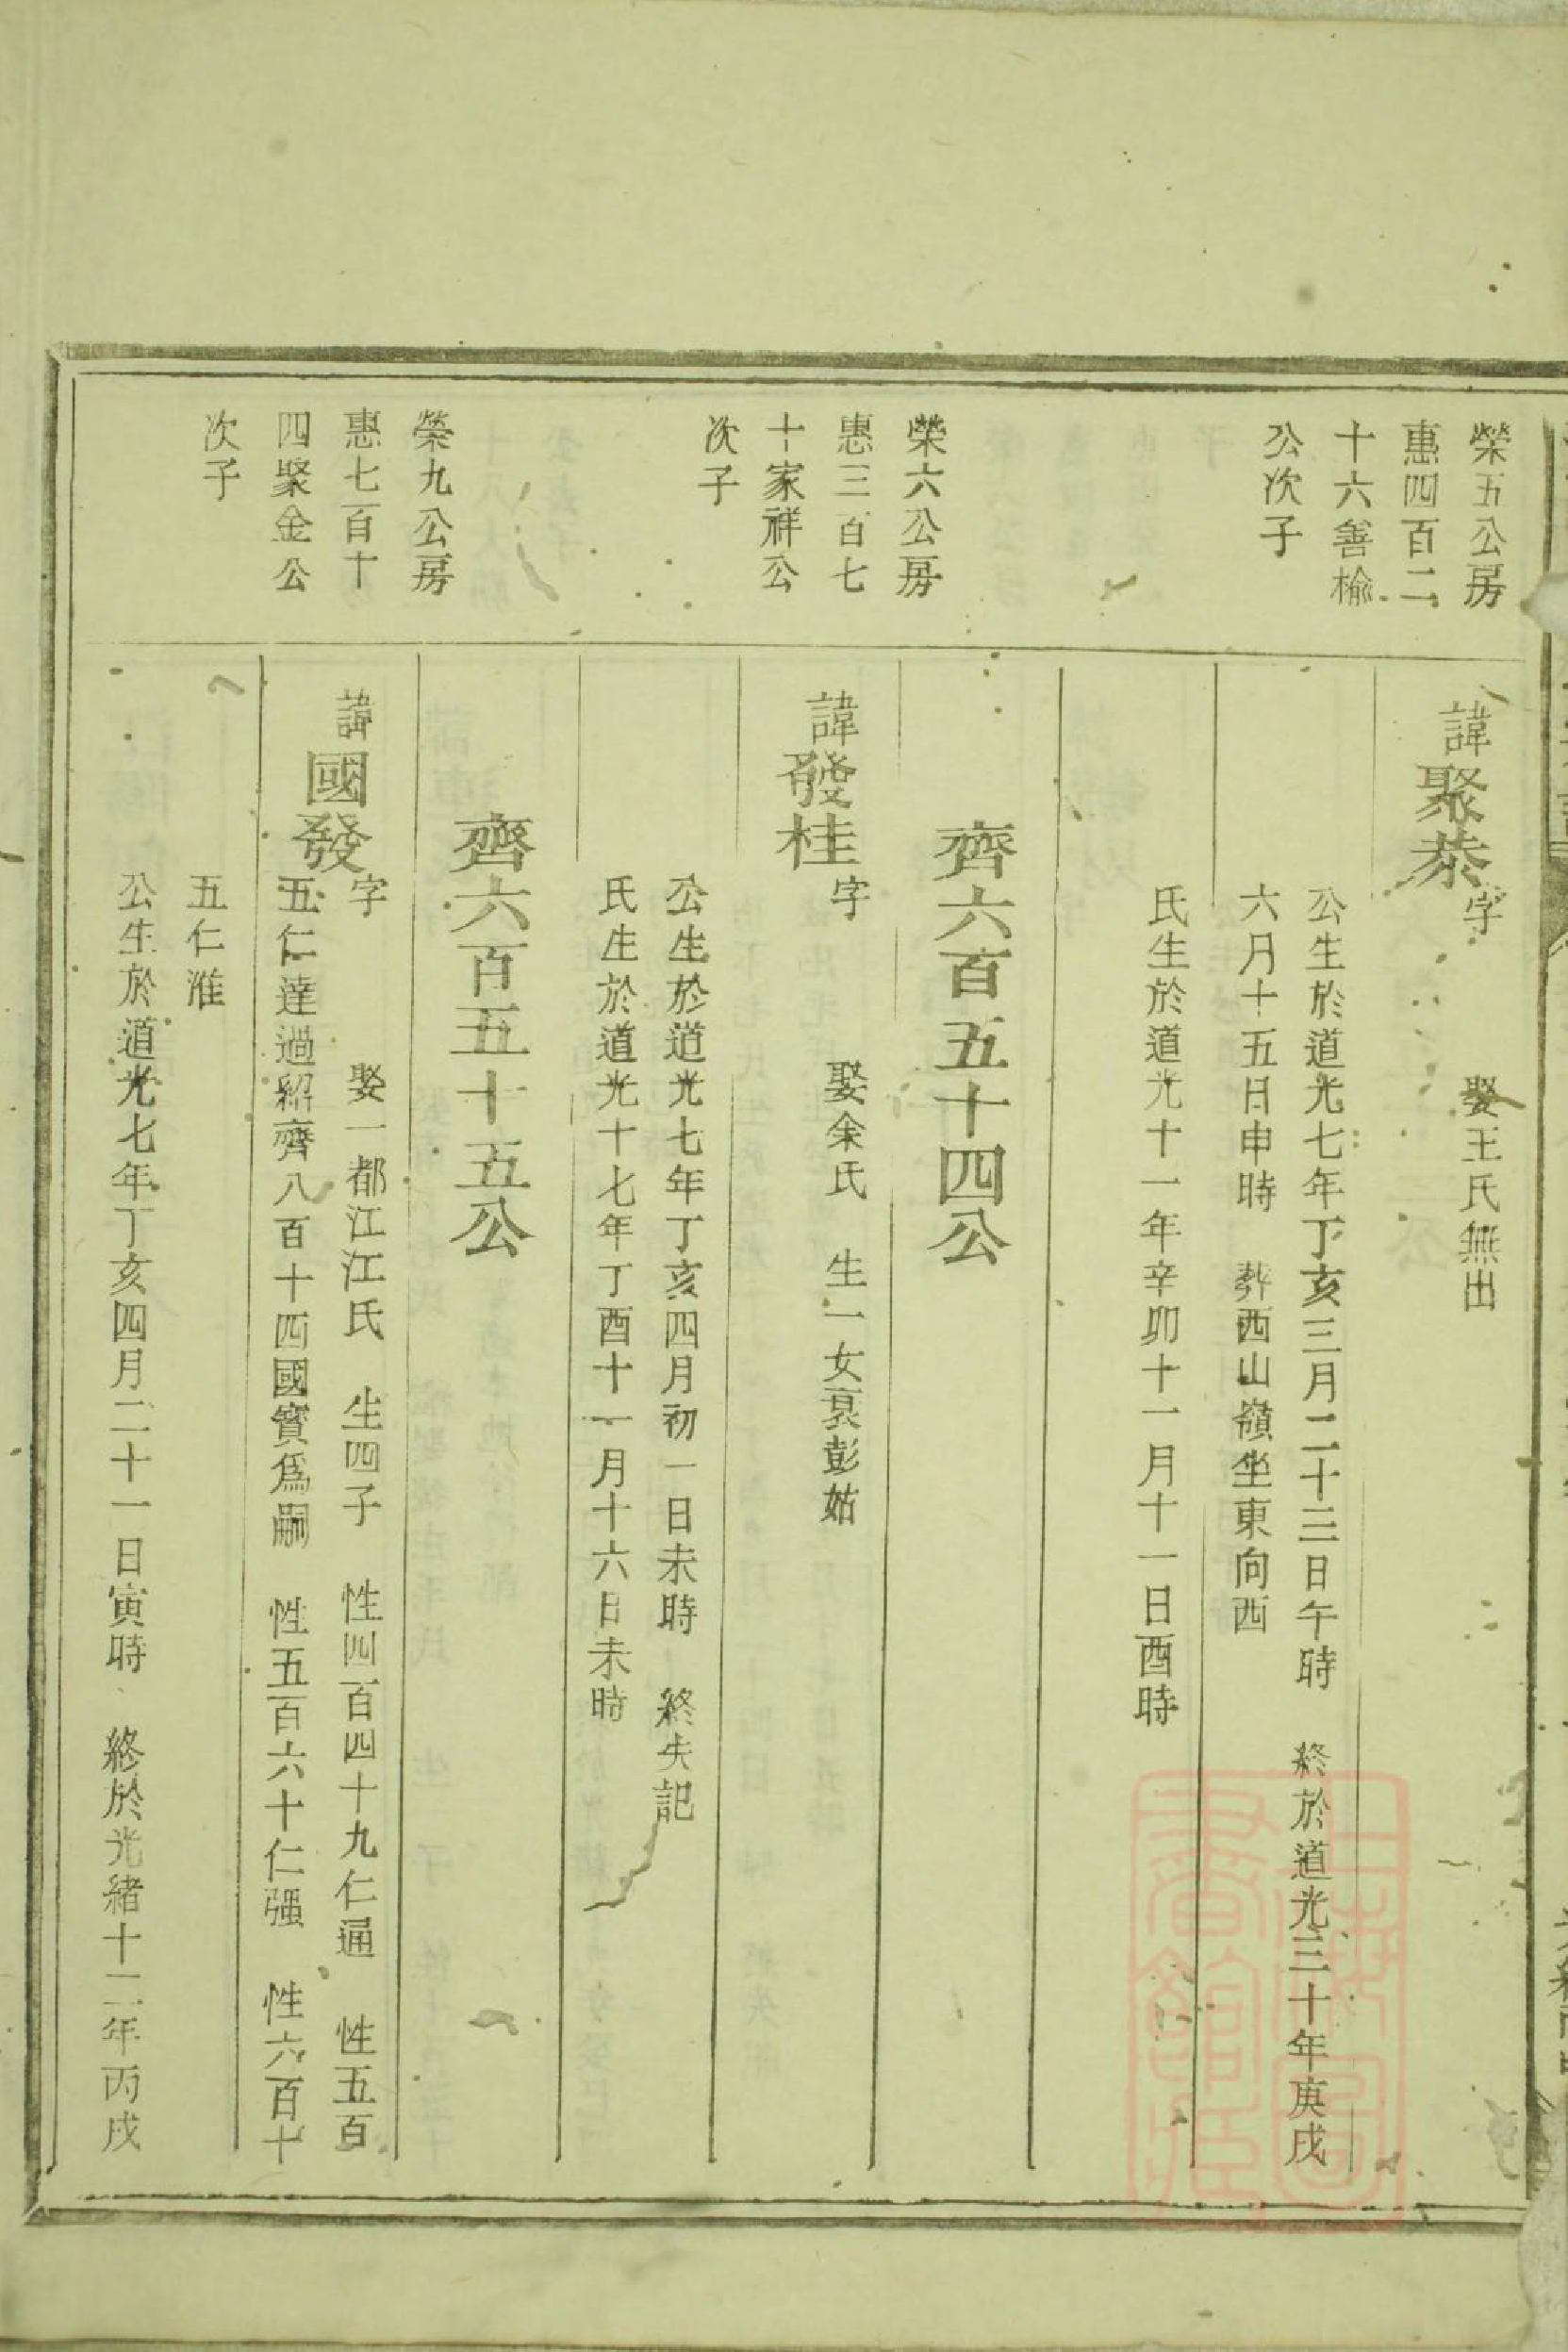 榮五公房
惠四百二
十六善榆
公次子
諱聚恭字 娶王氏無出
公生於道光七年丁亥三月二十三日午時 終於道光三十年庚戌
六月十五日申時 葬西山嶺坐東向西
氏生於道光十一年辛卯十一月十一日酉時
榮六公房
惠三百七
十家祥公
次子
齊六百五十四公
諱發桂字 娶余氏 生一女裒彭姑
公生於道光七年丁亥四月初一日未時 終失記
氏生於道光十七年丁酉十一月十六日未時
榮九公房
惠七百十
四聚金公
次子
齊六百五十五公
諱國發字 娶一都江江氏 生四子 性四百四十九仁通 性五百
五仁達過紹齊八百十四國寶爲嗣 性五百六十仁强 性六百十
五仁淮
公生於道光七年丁亥四月二十一日寅時 終於光緒十二年丙戌
上海圖書館藏